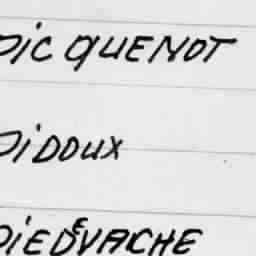 PiC QUENOT
PiDOUX
PiEDEVACHE